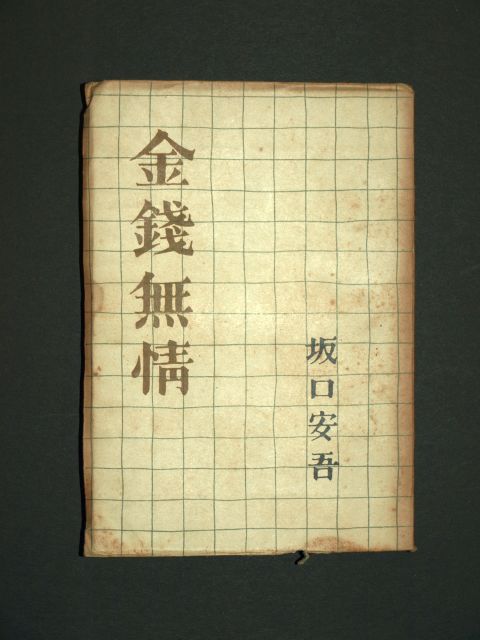 金錢無情
坂口安吾